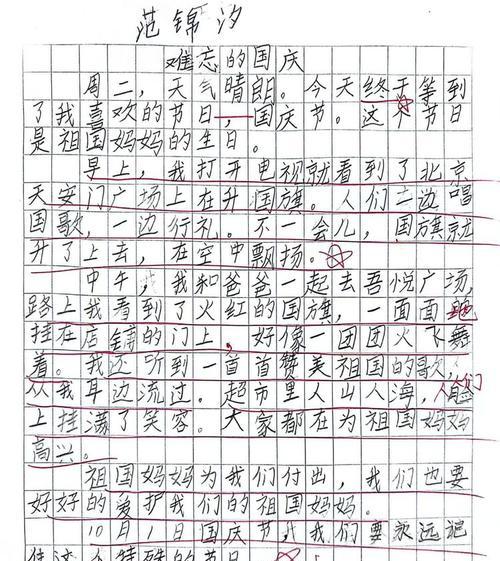 范锦汐
难忘的国庆
周二，天气晴朗。今天终于等到
了我喜欢的节日，国庆节。这个节日
是祖国妈妈的生日。
早上，我打开电视就看到了北京
天安门广场上在升国旗。人们一边唱
国歌，一边行礼。不一会儿，国旗就
升了上去，在空中飘扬。
中午，我和爸爸一起去吾悦广场，
路上我看到了火红的国旗，一面面
挂在店铺的门上，好像一团团火飞舞
着。我还听到一首首赞美祖国的歌，
从我耳边流过。超市里人山人海，人们脸
上挂满了笑容。大家都在为祖国妈妈
高兴。
祖国妈妈为我们付出，我们也要
好好的爱护我们的祖国妈妈。
10月1日国庆节，我们要永远记
住这个特殊的节日